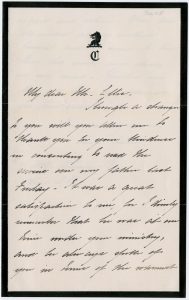 C
My dear Mr. Ellis.
Though a stranger
to you will you allow me to
thank you for your kindness
in consenting to read the
service over my father last
Friday. It was a great
satisfaction to me for I think
remember that he was at one
time under your ministry,
and he always spoke of
you in terms of the warmest